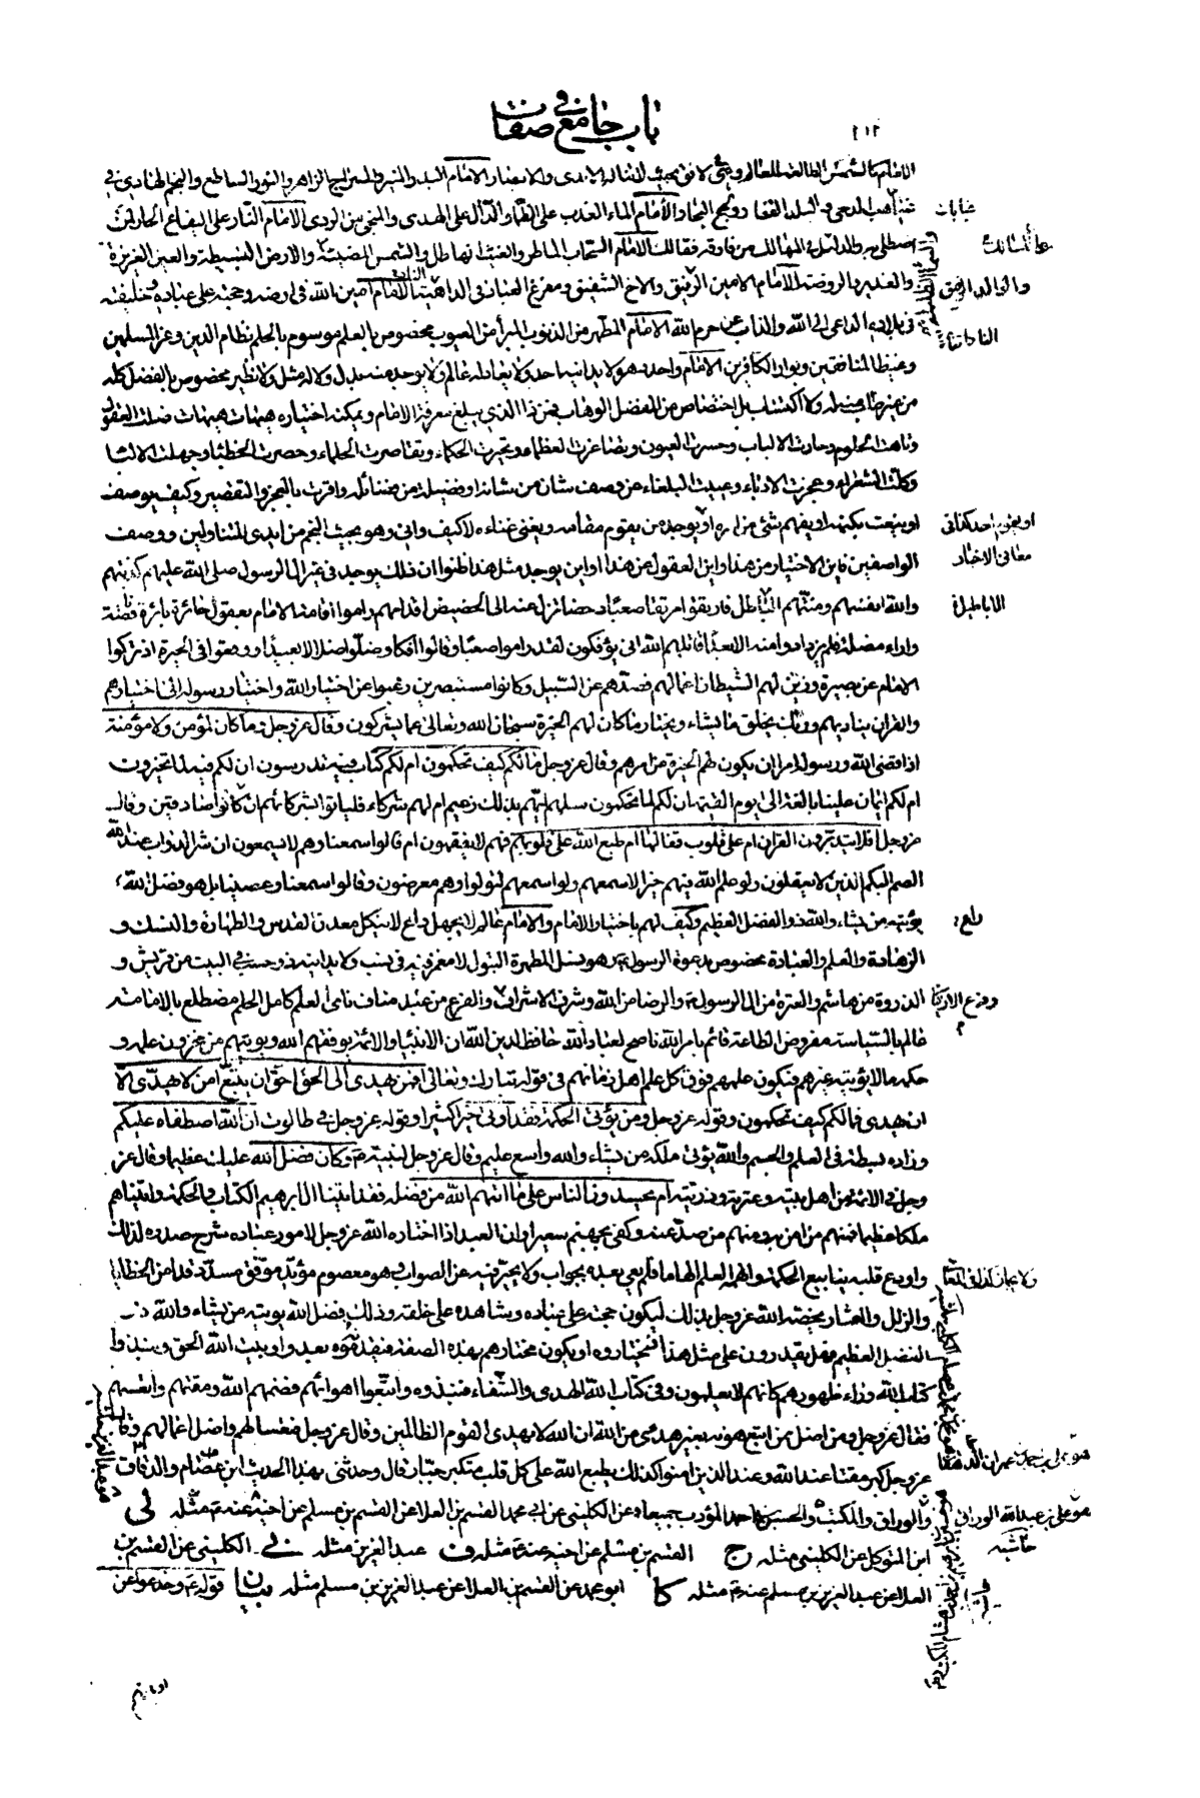 باب جامع في صفات
٢١٢
الامام كالشمس الطالعة للعالم وهي في الافق بحيث لا تناله الايدى والابصار الامام البدر المنير والسراج الزاهر والنور الساطع والنجم الهادي في
غياهب الدجى والبلد القفار ولجج البحار الامام الماء العذب على الظماء والدال على الهدى والمنجي من الردى الامام النار على اليفاع الحار لمن
اصطلى به والدليل في المهالك من فارقه فهالك الامام السحاب الماطر والغيث الهاطل والشمس المضيئة والارض البسيطة والعين الغزيرة
والغدير والروضة الامام الامين الرفيق والاخ الشفيق ومفزع العباد في الداهية الامام امين الله في ارضه وحجته على عباده وخليفته
في بلاده الداعي الى الله والذاب عن حرم الله الامام المطهر من الذنوب المبرأ من العيوب مخصوص بالعلم موسوم بالحلم نظام الدين وعز المسلمين
وغيظ المنافقين وبوار الكافرين الامام واحد دهره لا يدانيه احد ولا يعادله عالم ولا يوجد منه بدل ولا له مثل ولا نظير مخصوص بالفضل كله
من غير طلب منه له ولا اكتساب بل اختصاص من المفضل الوهاب فمن ذا الذي يبلغ معرفة الامام ويمكنه اختياره هيهات هيهات ضلت العقول
وتاهت الحلوم وحارت الالباب وحسرت العيون وتصاغرت العظماء وتحيرت الحكماء وتقاصرت الحلماء وحصرت الخطباء وجهلت الالباء
وكلت الشعراء وعجزت الادباء وعييت البلغاء عن وصف شان من شانه او فضيلة من فضائله واقرت بالعجز والتقصير وكيف يوصف
او ينعت بكنهه او يفهم شئ من امره او يوجد من يقوم مقامه ويغني غناءه لا كيف وانى وهو بحيث النجم من ايدى المتناولين ووصف
الواصفين فاين الاختيار من هذا واين العقول عن هذا او اين يوجد مثل هذا ظنوا ان ذلك يوجد في غير ال الرسول صلى الله عليهم كذبتهم
والله انفسهم ومنتهم الباطل فارتقوا مرتقا صعبا دحضا تزل عنه الى الحضيض اقدامهم راموا اقامة الامام بعقول حائرة بائرة ناقصة
واراء مضلة فلم يزدادوا منه الا بعدا قاتلهم الله انى يؤفكون لقد راموا صعبا وقالوا افكا وضلوا ضلالا بعيدا ووقعوا في الحيرة اذ تركوا
الامام عن بصيرة وزين لهم الشيطان اعمالهم فصدهم عن السبيل وكانوا مستبصرين رغبوا عن اختيار الله واختيار رسوله الى اختيارهم
والقران يناديهم وربك يخلق ما يشاء ويختار ما كان لهم الخيرة سبحان الله وتعالى عما يشركون وقال عز وجل وما كان لمؤمن ولا مؤمنة
اذا قضى الله ورسوله امرا ان يكون لهم الخيرة من امرهم وقال عز وجل مالكم كيف تحكمون ام لكم كتاب فيه تدرسون ان لكم فيه لما تخيرون
ام لكم ايمان علينا بالغة الى يوم القيمة ان لكم لما تحكمون سلهم ايهم بذلك زعيم ام لهم شركاء فلياتوا بشركائهم ان كانوا صادقين وقال
عز وجل افلا يتدبرون القران ام على قلوب اقفالها ام طبع الله على قلوبهم فهم لا يفقهون ام قالوا سمعنا وهم لا يسمعون ان شر الدواب عند الله
الصم البكم الذين لا يعقلون ولو علم الله فيهم خيرا لاسمعهم ولو اسمعهم لتولوا وهم معرضون وقالوا سمعنا وعصينا بل هو فضل الله
يؤتيه من يشاء والله ذو الفضل العظيم وكيف لهم باختيار الامام والامام عالم لا يجهل داع لا ينكل معدن القدس والطهارة والنسك و
الزهادة والعلم والعبادة مخصوص بدعوة الرسول وهو نسل المطهرة البتول لا مغمز فيه في نسب ولا يدانيه ذو حسب في البيت من قريش و
الذروة من هاشم والعترة من ال الرسول والرضا من الله وشرف الاشراف والفرع من عبد مناف نامى العلم كامل الحلم مضطلع بالامامة
عالم بالسياسة مفروض الطاعة قائم بامر الله ناصح لعباد الله حافظ لدين الله ان الانبياء والائمة يوفقهم الله ويؤتيهم من مخزون علمه و
حكمه ما لا يؤتيه غيرهم فيكون علمهم فوق كل علم اهل زمانهم في قوله تبارك وتعالى افمن يهدي الى الحق احق ان يتبع امن لا يهدي الا
ان يهدى فمالكم كيف تحكمون وقوله عز وجل ومن يؤتى الحكمة فقد اوتي خيرا كثيرا وقوله عز وجل في طالوت ان الله اصطفاه عليكم
وزاده بسطة في العلم والجسم والله يؤتي ملكه من يشاء والله واسع عليم وقال عز وجل لنبيه وكان فضل الله عليك عظيما وقال عز
وجل في الائمة من اهل بيته وعترته وذريته ام يحسدون الناس على ما اتيهم الله من فضله فقد اتينا ال ابرهيم الكتاب والحكمة واتيناهم
ملكا عظيما فمنهم من امن به ومنهم من صد عنه وكفى بجهنم سعيرا وان العبد اذا اختاره الله عز وجل لامور عباده شرح صدره لذلك
واودع قلبه ينابيع الحكمة والهمه العلم الهاما فلم يعي بعده بجواب ولا يحير فيه عن الصواب وهو معصوم مؤيد موفق مسدد قد امن الخطايا
والزلل والعثار يخصه الله عز وجل بذلك ليكون حجته على عباده وشاهده على خلقه وذلك فضل الله يؤتيه من يشاء والله ذو
الفضل العظيم فهل يقدرون على مثل هذا فيختاروه او يكون مختارهم بهذه الصفة فيقدموه بعدوا وبيت الله الحق ونبذوا
كتاب الله وراء ظهورهم كانهم لا يعلمون وفي كتاب الله الهدى والشفاء فنبذوه واتبعوا اهوائهم فذمهم الله ومقتهم واتعسهم
فقال عز وجل ومن اضل ممن اتبع هويه بغير هدى من الله ان الله لا يهدى القوم الظالمين وقال عز وجل فتعسا لهم واضل اعمالهم وقال
عز وجل كبر مقتا عند الله وعند الذين امنوا كذلك يطبع الله على كل قلب متكبر جبار قال وحدثني بهذا الحديث ابن عصام والدقاق
والوراق والمكتب والحسين بن احمد المؤدب جميعا عن الكليني عن ابي محمد القسم بن العلا عن القسم بن مسلم عن اخيه عنه مثله لى
ابن المتوكل عن الكليني مثله ج القسم بن مسلم عن اخيه عنه مثله ف عبد العزيز مثله نى الكليني عن القسم بن
العلا عن عبد العزيز بن مسلم عنه مثله كا ابو محمد عن القسم بن العلا عن عبد العزيز بن مسلم مثله بيان قوله وحد عن
غيابات
والوالد الرفيق
معاني الاخبار
الاباطيل
راع
حاشية